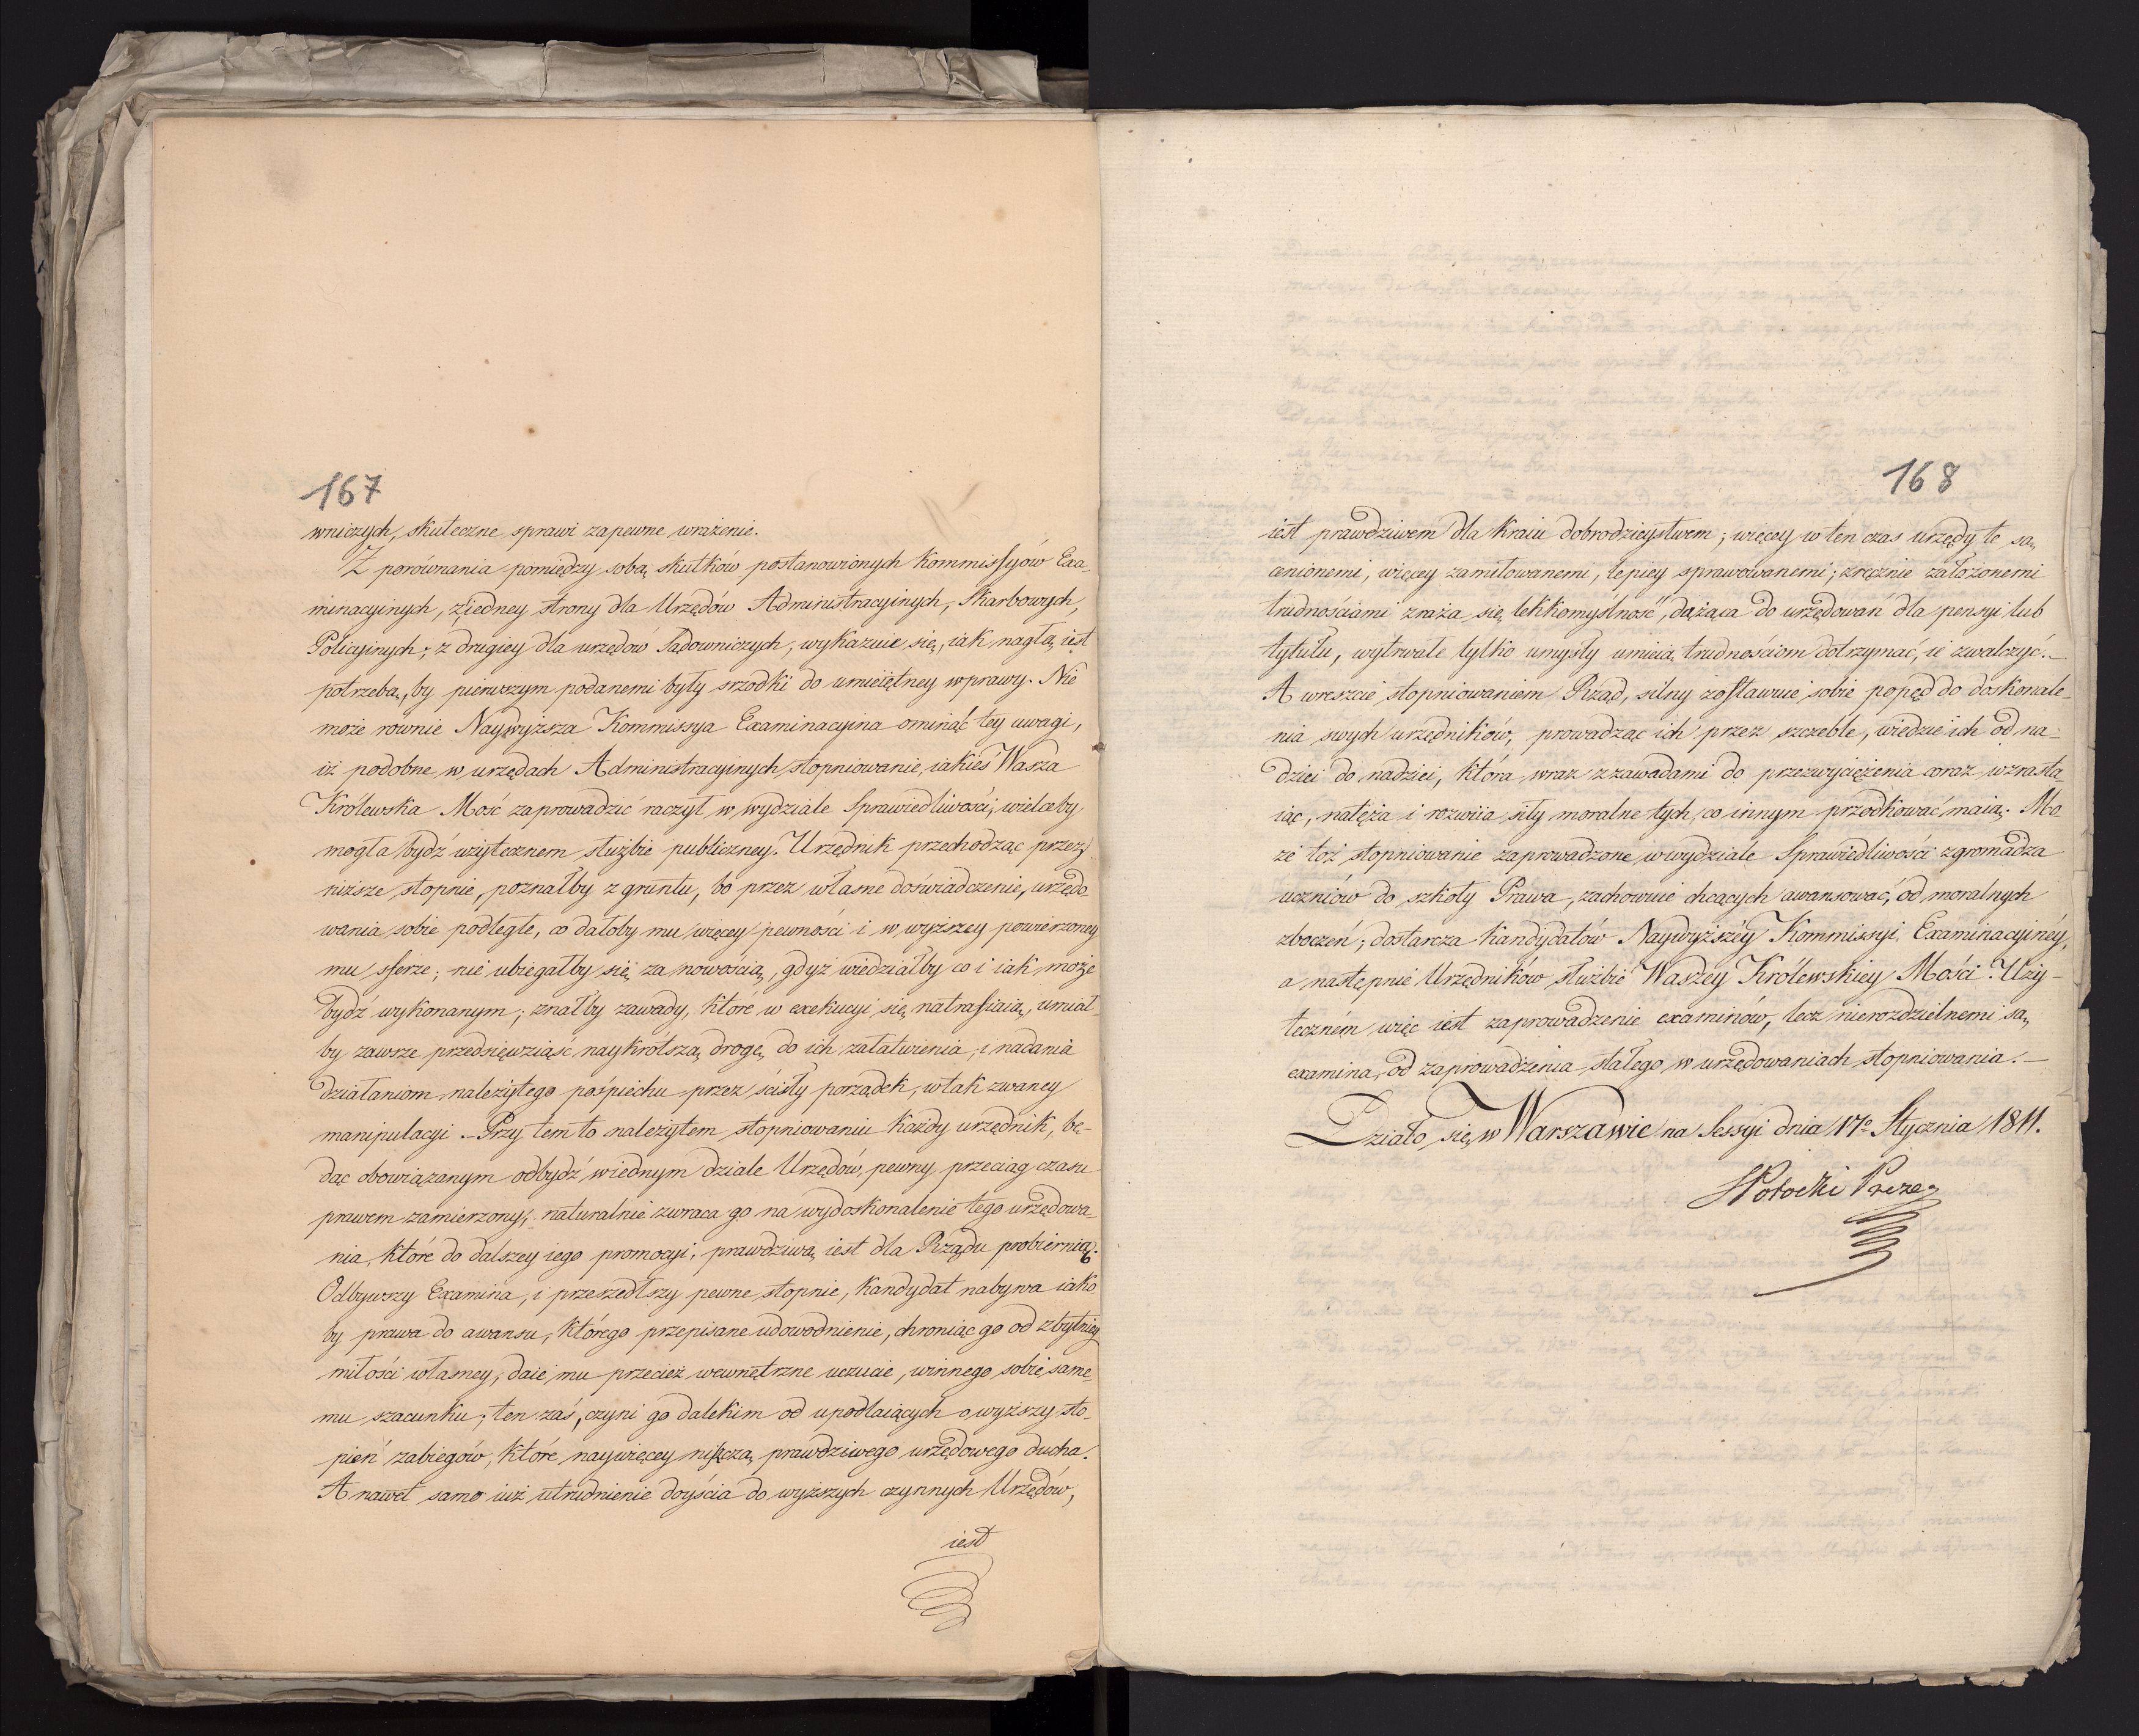 167
wniczych, skuteczne sprawi zapewne wrażenie.
Z porównania pomiędzy sobą skutków postanowionych Kommissyów Exa-
minacyinych, ziedney strony dla Urzędów Administracyinych, Skarbowych,
Policyinych; z drugiey dla urzędów Sadowniczych, wykazuie się, iak nagłą iest
potrzebą, by pierwszym podanemi były srzodki do umieiętney wprawy. Nie
może równie Naywyższa Kommissya Examinacyina ominąć tey uwagi,
iż podobne w urzędach Administracyinych stopniowanie, iakieś Wasza
Królewska Mość zaprowadzić raczył w wydziale Sprawiedliwości, wielceby
mogła bydź użytecznem służbie publiczney. Urzędnik przechodząc przez
niższe stopnie, poznałby z gruntu, bo przez własne doświadczenie, urzędo-
wania sobie podległe, co dałoby mu więcey pewności i w wyższey powierzoney
mu sferze; nie ubiegałby się za nowością, gdyż wiedziałby co i iak może
bydź wykonanym; znałby zawady, które w exekucyi się natrafiaią, umiał-
by zawsze przedsięwziąść naykrótszą drogę do ich załatwienia, i nadania
działaniom należytego pośpiechu przez ścisły porządek, w tak zwaney
manipulacyi. – Przy tem to należytem stopniowaniu każdy urzędnik, bę-
dąc obowiązanym odbydź wiednym dziale Urzędów, pewny przeciąg czasu
prawem zamierzony, naturalnie zwraca go na wydoskonalenie tego urzędowa-
nia, które do dalszey iego promocyi, prawdziwą iest dla Rządu probiernią.
Odbywszy Examina, i przeszedłszy pewne stopnie, Kandydat nabywa iako
by prawa do awansu, którego przepisane udowodnienie, chroniąc go od zbytniey
miłości własney, daie mu przecież wewnętrzne uczucie, winnego sobie same-
mu szacunku; ten zaś, czyni go dalekim od upodlaiących o wyższy sto-
pień zabiegów, które naywięcey niszczą prawdziwego urzędowego ducha.
A nawet samo iuż utrudnienie doyścia do wyższych czynnych Urzędów,
iest
168
iest prawdziwem dla Kraiu dobrodzieystwem; więcey w ten czas urzędy te są
cenionemi, więcey zamiłowanemi, lepiey sprawowanemi; zręcznie założonemi
trudnościami zraża się lekkomyślność, dążąca do urzędowań dla pensyi lub
tytułu, wytrwałe tylko umysły umieią trudnościom dotrzymać, ie zwalczyć. –
A wreszcie stopniowaniem Rząd, silny zostawuie sobie popęd do doskonale-
nia swych urzędników, prowadząc ich przez szczeble, wiedzie ich od na-
dziei do nadziei, która wraz z zawadami do przezwyciężenia coraz wzrasta-
iąc, natęża i rozwiia siły moralne tych, co innym przodkować maią. Mo-
że toż stopniowanie zaprowadzone w wydziale Sprawiedliwości zgromadza
uczniów do szkoły Prawa, zachowuie chcących awansować, od moralnych
zboczeń; dostarcza kandydatów Naywyższéy Kommissyi Examinacyinéy,
a następnie Urzędników służbie Waszey Królewskiey Mości. Uży-
teczném więc iest zaprowadzenie examinów, lecz nierozdzielnemi są
examina, od zaprowadzenia stałego w urzędowaniach stopniowania. –
Działo się w Warszawie na Sessyi dnia 17º Stycznia 1811.
SPotocki Prezes